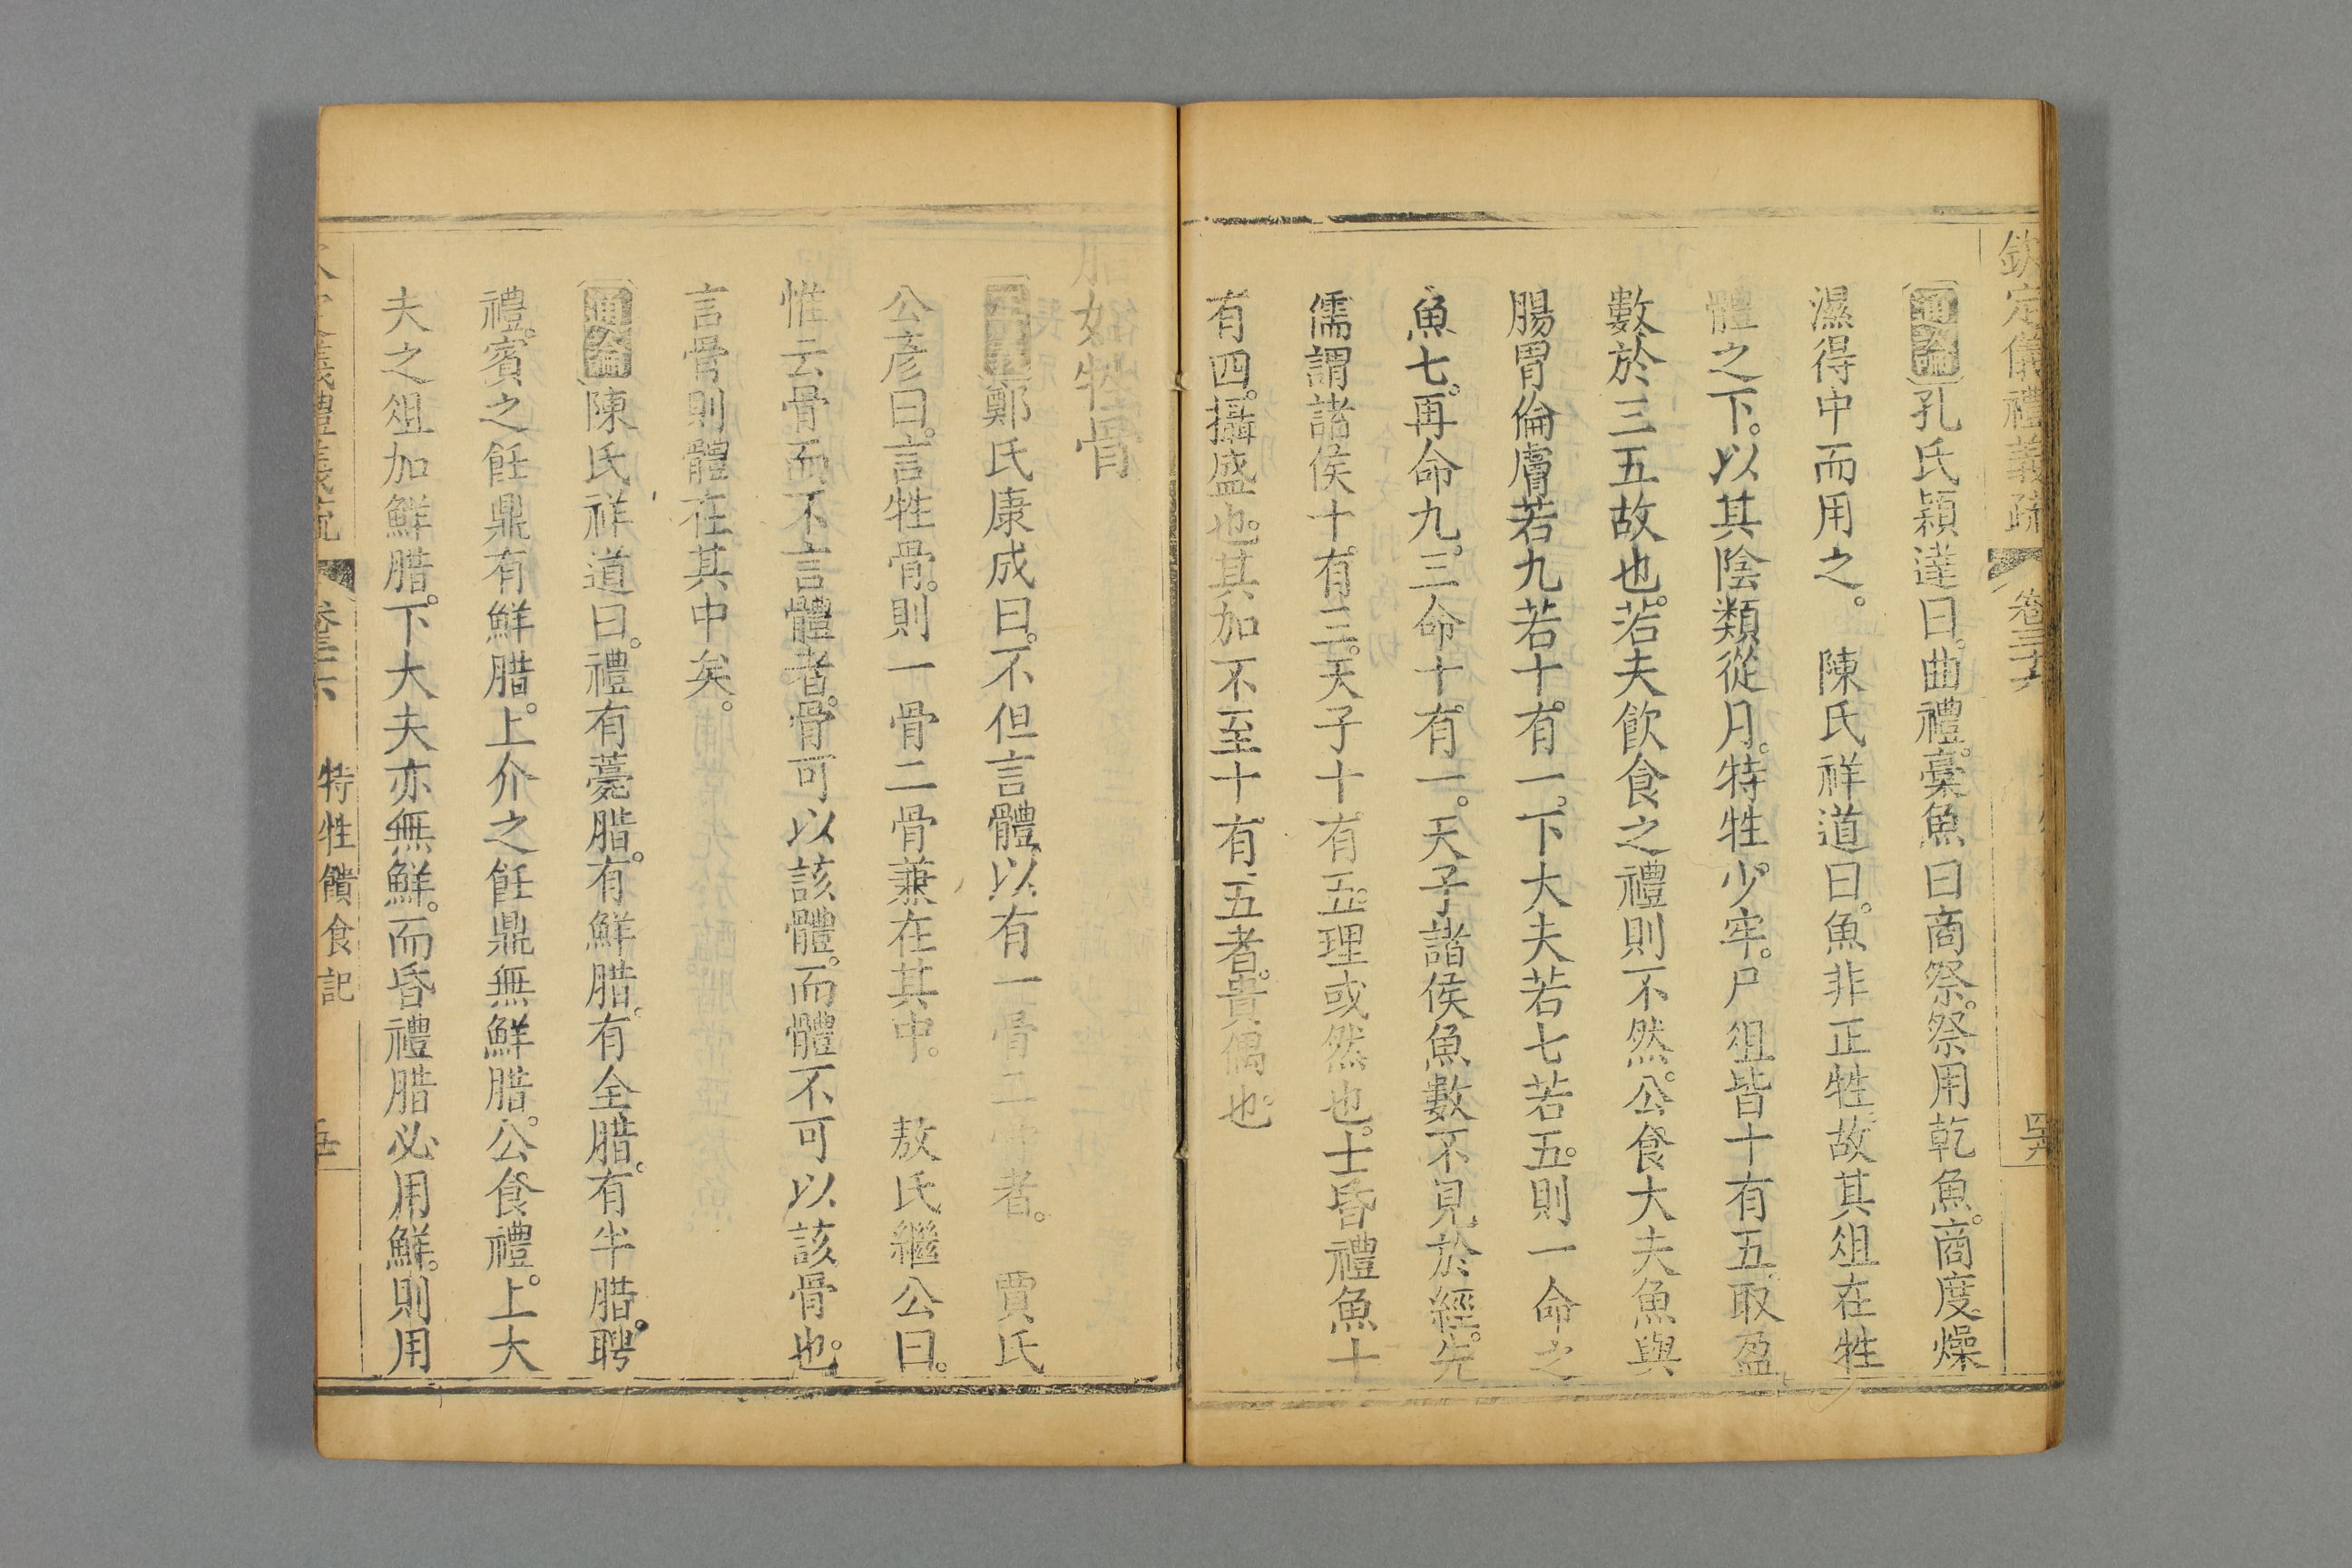 欽定儀禮義疏 卷三十六
通論孔氏穎達曰。曲禮。槀魚曰商祭。祭用乾魚。商度燥
濕得中而用之。 陳氏祥道曰。魚非正牲故其俎在牲
體之下。以其陰類從月。特牲。少牢。尸俎皆十有五取盈
數於三五故也。若夫飲食之禮則不然。公食大夫魚與
腸胃倫膚若九若十。有一。下大夫若七若五。則一命之
魚七。再命九。三命十。有一。天子諸侯魚數不見於經。先
儒謂諸侯十。有三。天子十。有五。理或然也。士昏禮魚十
有四。攝盛也。其加不至十有五者。貴偶也。
腊如牲骨
鄭氏康成曰。不但言體以有一骨二骨者。 賈氏
公彥曰。言牲骨。則一骨二骨兼在其中。 敖氏繼公曰。
惟云骨而不言體者。骨可以該體。而體不可以該骨也。
言骨則體在其中矣。
通論陳氏祥道曰。禮有薧腊。有鮮腊。有全腊。有半腊。聘
禮。賓之飪鼎有鮮腊。上介之飪鼎無鮮腊。公食禮。上大
夫之俎加鮮腊。下大夫亦無鮮。而昏禮腊必用鮮。則用
特牲饋食記